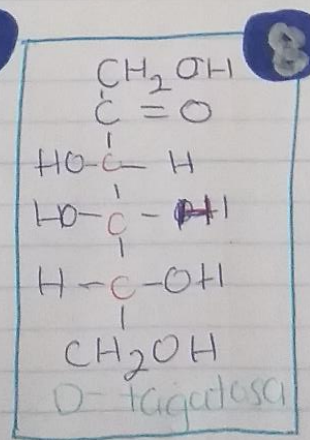 8
CH2OH
C = O
HO-C-H
HO-C-H
H-C-OH
CH2OH
D-tagatosa